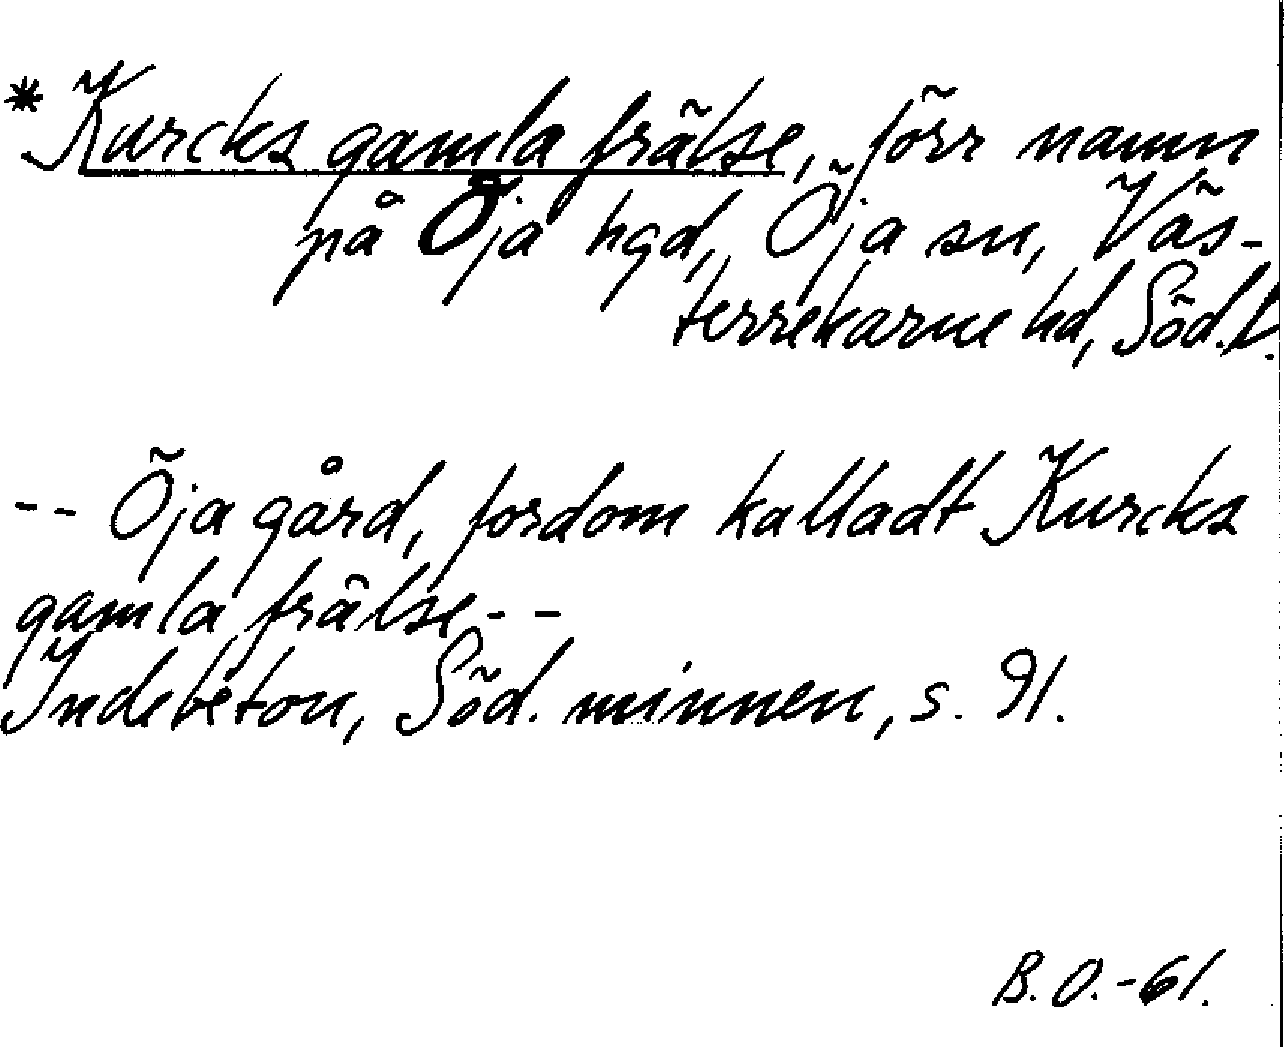 * Kurcks gamla frälse, förr namn
på Öja hgd, Öja sn, Väs-
terrekarne hd, Söd. l.
-- Öja gård, fordom kalladt Kurcks
gamla frälse --
Indebetou, Söd. minnen, s. 91.
B. O. -61.